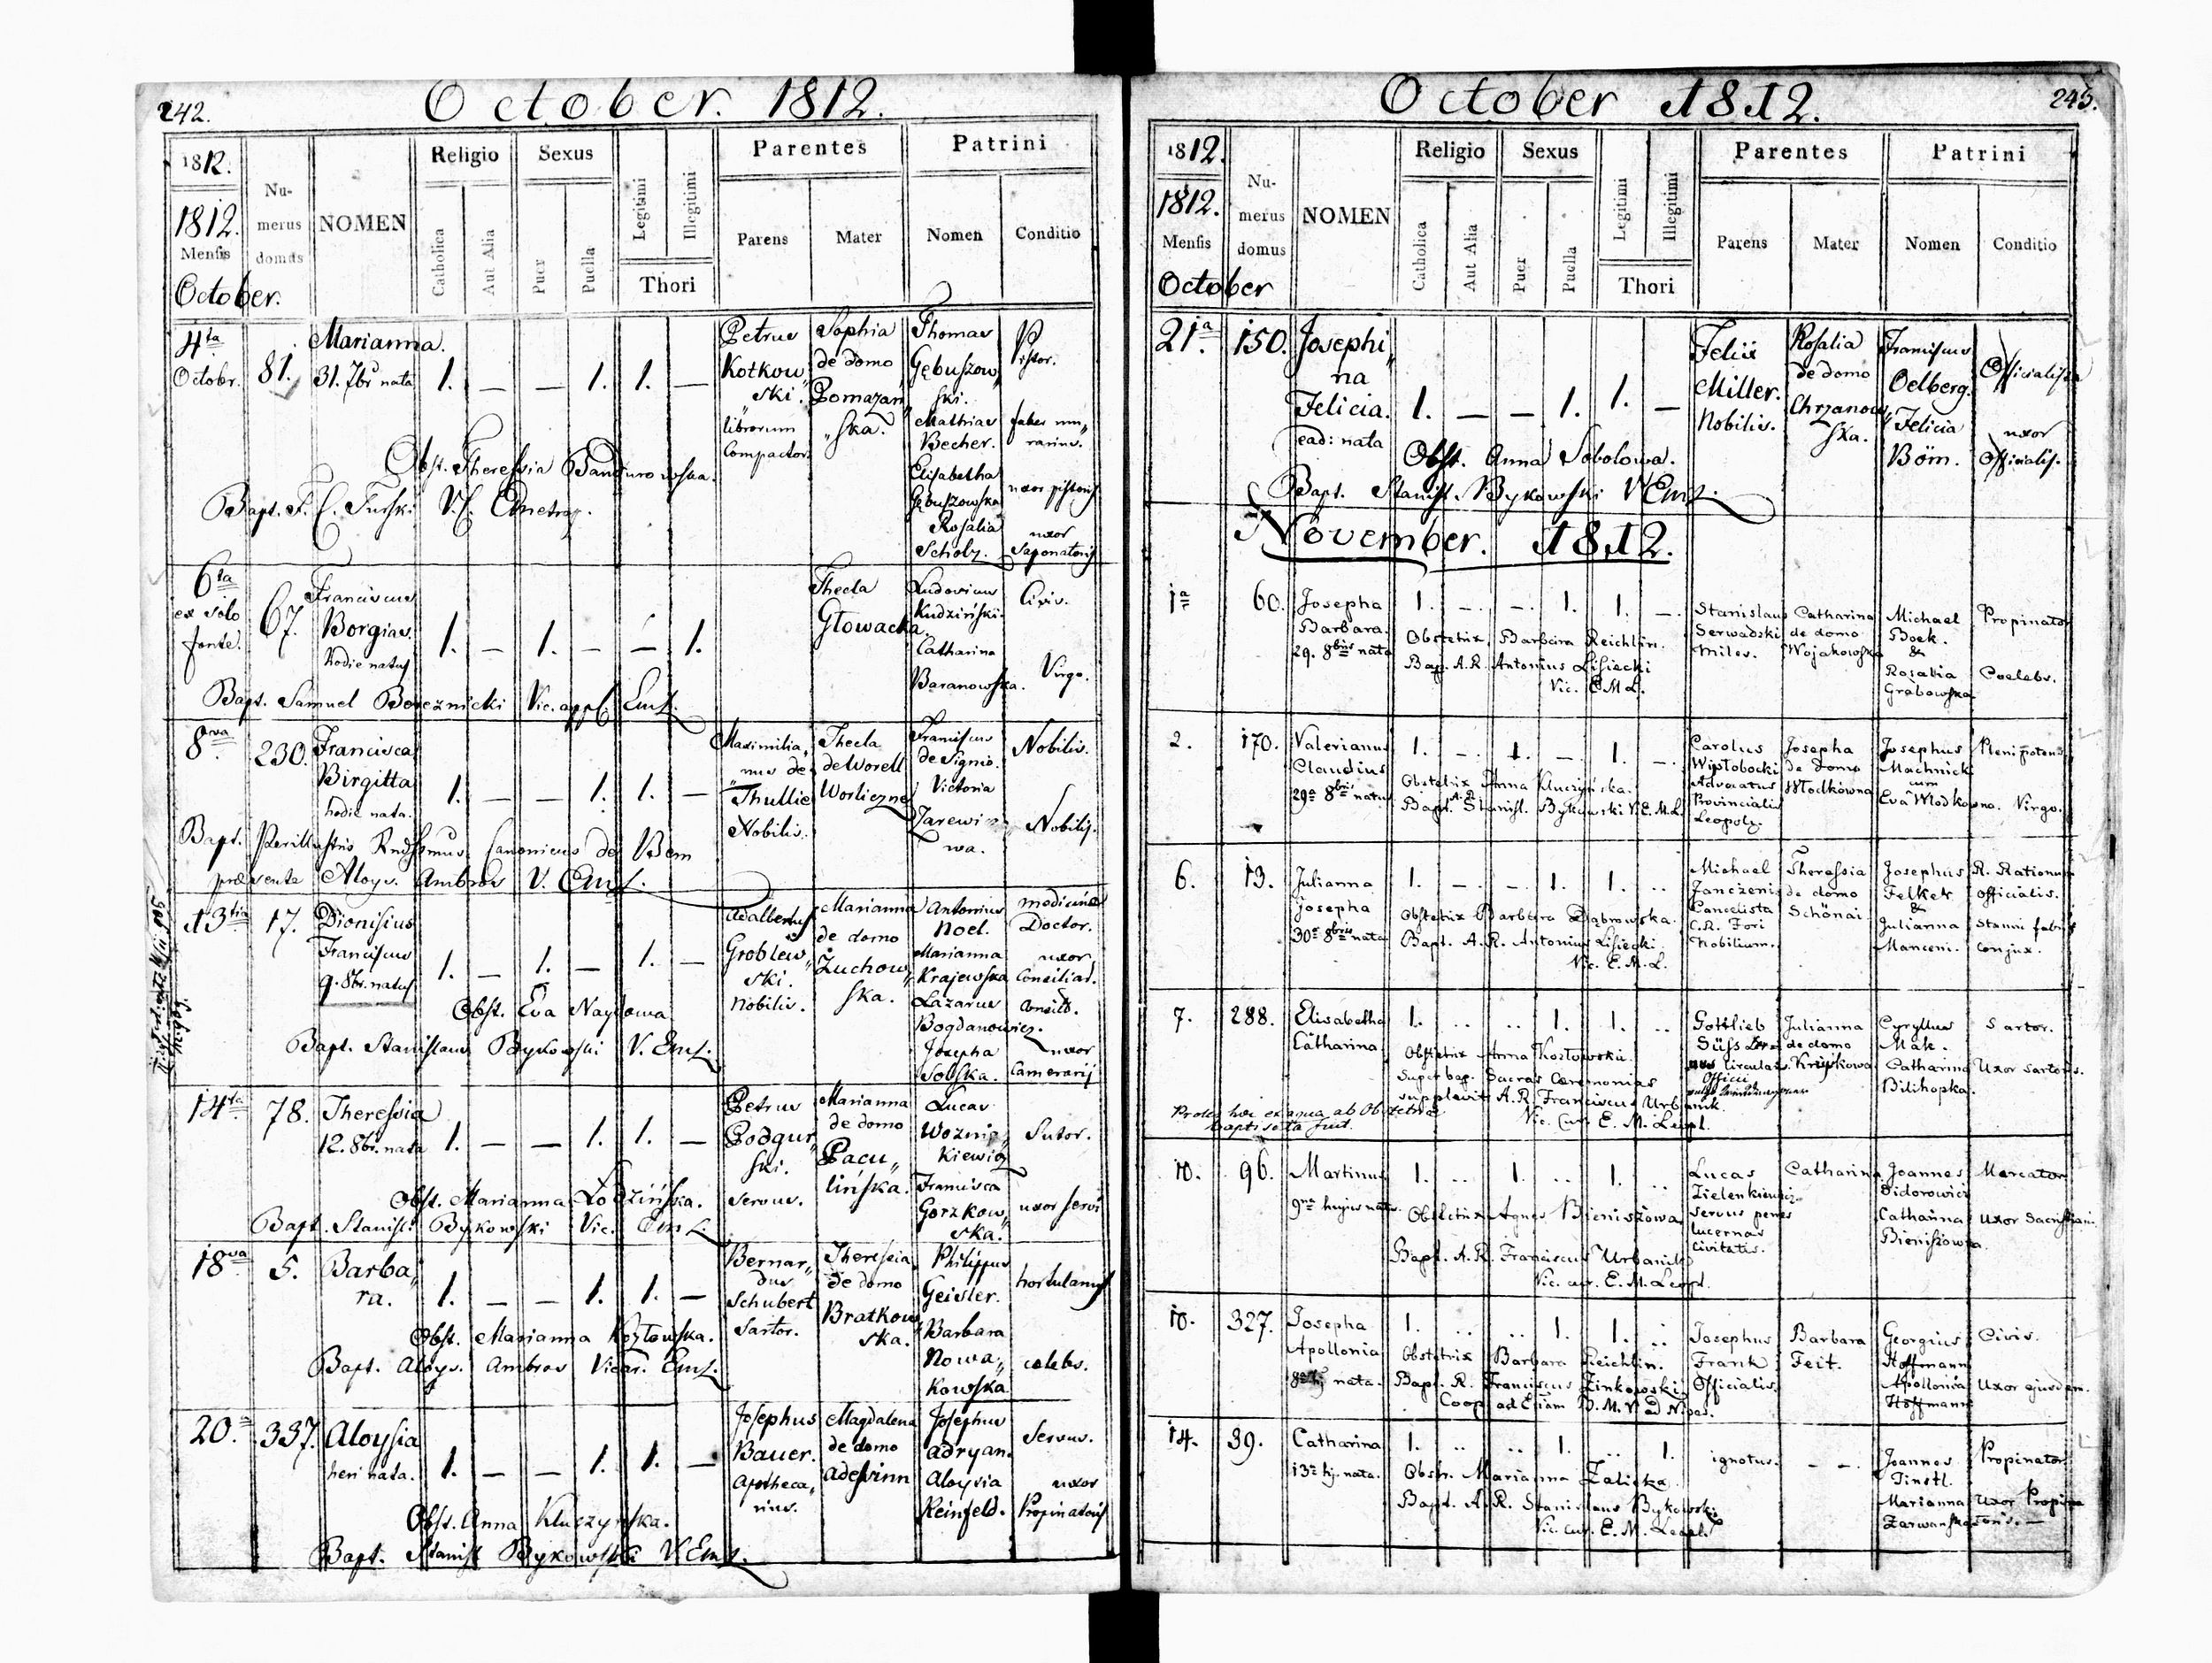 242.
October. 1812.
1812.
1812.
Mensis
October.
Nu-
merus
domus
NOMEN
Religio
Catholica
Aut Alia
Sexus
Puer
Puella
Legitimi
Illegitimi
Thori
Parentes
Parens
Mater
Patrini
Nomen
Conditio
4ta
Octobr.
81.
Marianna.
31. 7br nata
1. — — 1. 1. —
Petrus
Kotkow„
ski.
librorum
Compactor
Sophia
de domo
Pomazań„
ska.
Thomas
Gębuszow„
ski.
Mathias
Becher.
Elisabetha
Gębuszowska
Rosalia
Scholz.
Pistor.
faber mu„
rarius.
uxor pistoris
uxor
Saponatoris
Obst. Theressia Bandurowska.
6ta
ex solo
fonte.
67.
Franciscus
Borgias.
hodie natus
1. — 1. — — 1.
Thecla
Głowacka
Ludovicus
Kudziński.
Catharina
Baranowska.
Civis.
Virgo.
Bapt. Samuel Boreznicki Vic. appl. EmL.
8va
230.
Francisca
Birgitta
hodie nata.
1. — — 1. 1. —
Maximilia„
nus de
Thullie
Nobilis.
Thecla
de Worell
Worliczne
Franciscus
de Signio.
Victoria
Nobilis.
Nobilis.
Bapt. Perillustris Rndssimus Canonicus de Bem
præsente Aloys. Ambros V. EmL.
13tia
17.
Dionisius
Franciscus
9. 8br. natus
1. — 1. — 1. —
Adalbertus
Groblew„
ski.
Nobilis.
Marianna
de domo
Żuchow„
ska.
Antonius
Noel.
Marianna
Krajewska
Lazarus
Bogdanowicz.
Josepha
Sobska.
medicinæ
Doctor.
uxor
Consiliar.
Consil.
uxor
Camerarij
Obst. Eva Naydowa
Bapt. Stanislaus Bykowski V. EmL.
14ta
78.
Theressia
12. 8br. nata
1. — — 1. 1. —
Petrus
Podgur„
ski.
Servus.
Marianna
de domo
Pacu„
lińska.
Lucas
Woznia„
kiewicz
Francisca
Gorzkow„
ska.
Sutor.
uxor servi
Obst. Marianna Łodzińska.
Bapt. Stanisl. Bykowski Vic. EmL.
18va
5.
Barba„
ra.
1. — — 1. 1. —
Bernar„
dus
Schubert
Sartor.
Theressia
de domo
Bratkow„
ska.
Philippus
Geisler.
Barbara
Nowa„
kowska
hortulanus
celebs.
Obst. Marianna Kozłowska.
Bapt. Aloys. Ambros Vicar. EmL.
20a
337.
Aloysia
heri nata.
1. — — 1. 1. —
Josephus
Bauer.
Apotheca„
rius.
Magdalena
de domo
Adeswinn
Josephus
Adryan.
Aloysia
Reinfeld.
Servus.
uxor
Propinatoris
Obst. Anna Kluczynska.
Bapt. Stanisl Bykowski V. EmL.
October 1812.
243.
1812.
1812.
Mensis
October
Nu-
merus
domus
NOMEN
Religio
Catholica
Aut Alia
Sexus
Puer
Puella
Legitimi
Illegitimi
Thori
Parentes
Parens
Mater
Patrini
Nomen
Conditio
21a.
150.
Josephi„
na
Felicia.
ead: nata
1. — — 1. 1. —
Felix
Miller.
Nobilis.
Rosalia
de domo
Chrzanow„
ska.
Franciscus
Oelberg.
Felicia
Böm.
Officialista
uxor
Officialis.
Obst. Anna Sobolowa.
Bapt. Stanisl. Bykowski V EmL.
November. 1812.
1a
60.
Josepha
Barbara.
29. 8bris nata
1. — — 1. 1. —
Stanislaus
Serwadski
Miles.
Catharina
de domo
Wojakowska
Michael
Boek.
&
Rosalia
Grabowska
Propinator
Coelebs.
Obstetrix Barbara Reichlin.
Bap. A. R. Antonius Lisiecki
Vic. E. M. L.
2.
170.
Valerianus
Claudius
29a 8bris natus
1. — 1. — 1. —
Carolus
Wisłobocki
Advocatus
Provincialis
Leopoly.
Josepha
de domo
Włodkówna
Josephus
Machnick
cum
Eva Włodkowna.
Plenipotens
Virgo.
Obstetrix Anna Kluczyńska.
Bapt. A. R. Stanisl. Bykowski V. E. M. L.
6.
13.
Julianna
Josepha
30a 8bris nata
1. — — 1. 1. ..
Michael
Janczenis
Cancelista
C. R. Fori
Nobilium.
Theressia
de domo
Schönai
Josephus
Felker
&
Julianna
Manceni.
R. Rationum
officialis.
Stanni fabri
conjux.
Obstetrix Barbara Dąbrowska.
Bapt. A. R. Antonius Lisiecki.
Vic. E. M. L.
7.
288.
Elisabetha
Catharina
1. .. .. 1. 1. ..
Gottlieb
Süss
circula
Officii
Julianna
de domo
Cyryllus
Mak.
Catharina
Bilihopka.
Sartor.
Uxor sartoris.
Obstetrix Anna Kozłowska.
Super bap. Sacras Ceremonias
supplevit A. R. Franciscus Urbanik.
Vic. Cur. E. M. Leopl.
Proles hæc ex aqua ab Obstetrice
baptisata fuit.
10.
96.
Martinus
9na hujus natus.
1. .. 1. .. 1. ..
Lucas
Zielenkiewicz
servus penes
lucernas
civitatis.
Catharina
Joannes
Sidorowicz
Catharina
Bieniszowa.
Mercator
Uxor Sacristiani.
Obstetrix Agnes Bieniszowa
Bapt. A. R. Franciscus Urbanik
Vic. cur. E. M. Leopl.
10.
327.
Josepha
Apollonia
8a hj nata.
1. .. .. 1. 1. ..
Josephus
Frank
Officialis.
Barbara
Feit.
Georgius
Hoffmann
Apollonia
Hoffmann
Civis.
Uxor ejusdem.
Obstetrix Barbara Reichlin.
Bapt. R. Franciscus Zinkowski
Coop. ad Eclam B. M. V. ad Nives.
14.
39.
Catharina
13a hj. nata.
1. .. .. 1. .. 1.
ignotus.
— —
Joannes
Tinstl.
Marianna
Zarwanska
Propinator
Uxor Propina
toris. —
Obstr. Marianna Zalicka
Bapt. A. R. Stanislaus Bykowski
Vic. cur. E. M. Leopl.